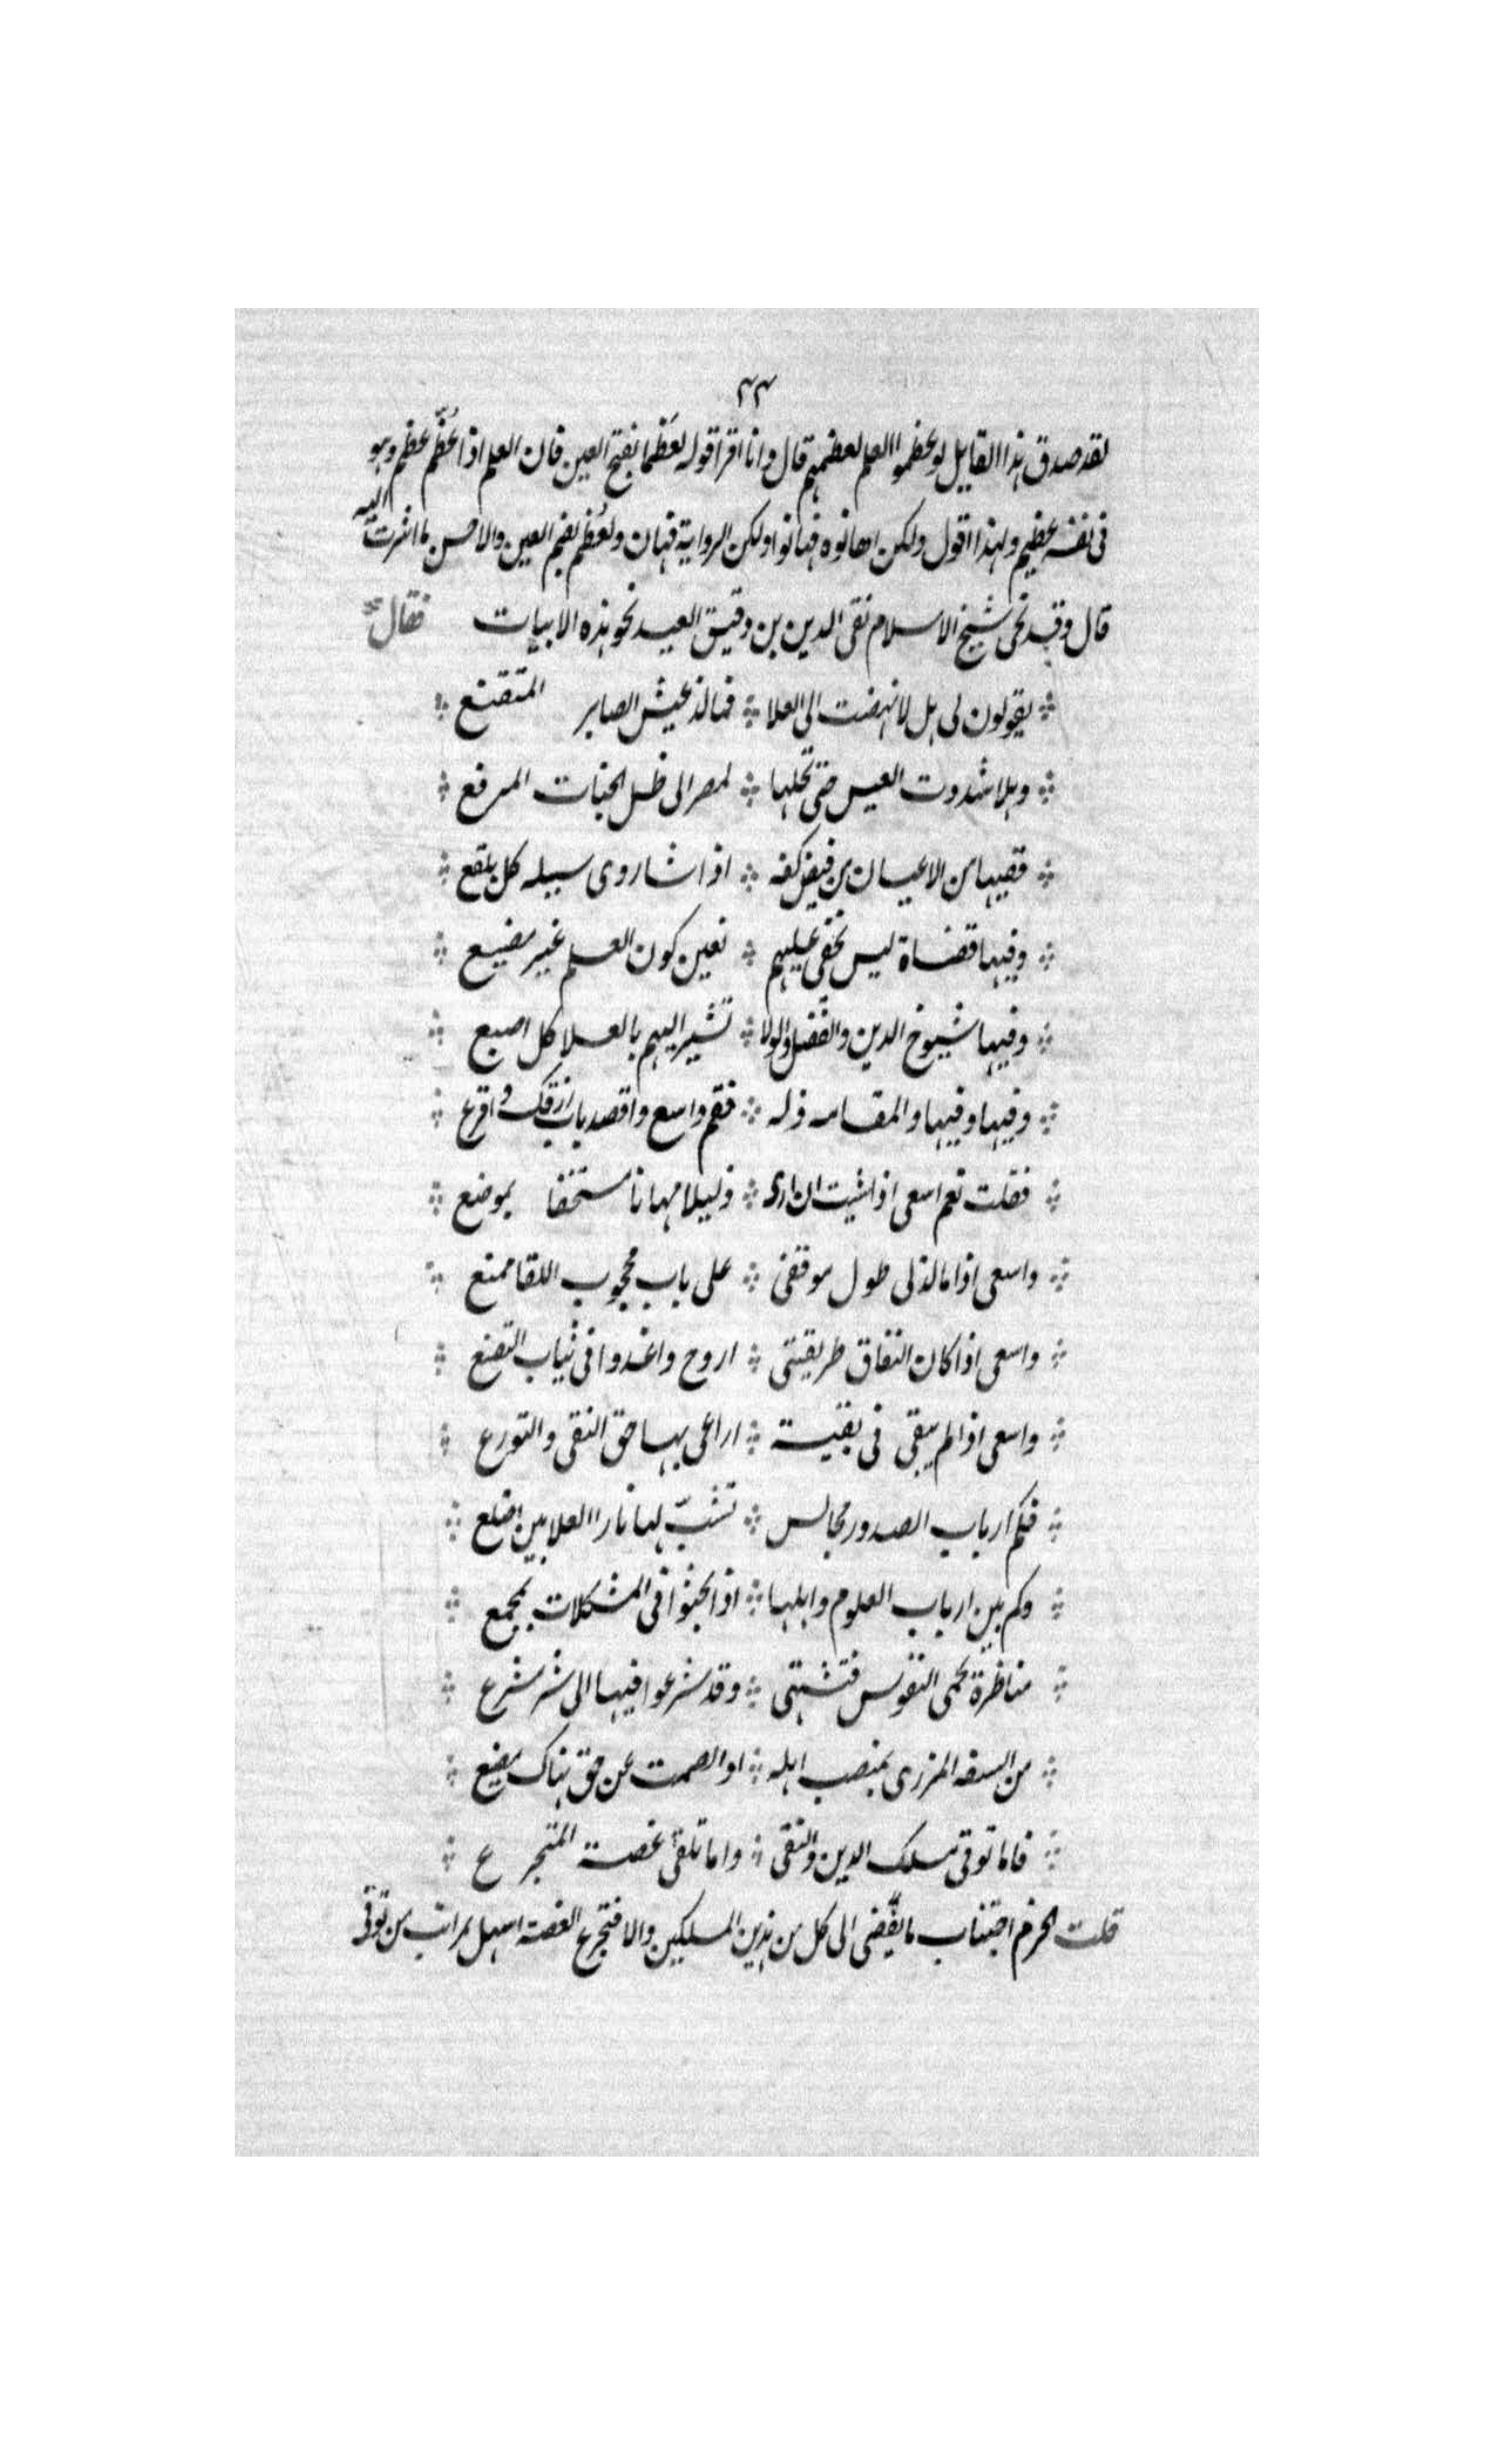 ٢٣
لقد صدق هذا القايل لو عظموا العلم لعظمهم قال وانا اقرا قوله لعَظما بفتح العين فان العلم اذا عُظّم عظم وهو
فى نفسه عظيم ولهذا اقول ولكن اهانوه فهانوا ولكن الرواية فهان ولعُظم بضم العين والاحسن ما اشرت اليه
قال وقد نحى شيخ الاسلام تقى الدين بن دقيق العيد نحو هذه الابيات فقال
يقولون لى هل لا نهضت الى العلا فما لذ عيش الصابر المتقنع
وهلا شددت العيس حتى تحلها لمصر الى ظل الجناب المرفع
ففيها من الاعيان من فيض كفه اذا شا روى سيله كل بلقع
وفيها قضاة ليس يخفى عليهم تعين كون العلم غير مضيع
وفيها شيوخ الدين والفضل والولا تشير اليهم بالعلا كل اصبع
وفيها وفيها والمقامه ذله فقم واسع واقصد باب رزقك واقرع
فقلت نعم اسعى اذا شيت ان ارى ذليلا مهانا مستخفا بموضع
واسعى اذا ما لذ لى طول موقفى على باب محجوب اللقا ممنع
واسعى اذا كان النفاق طريقتى اروح واغدوا فى ثياب التصنع
واسعى اذا لم يبقى فى بقية اراعى بها حق التقى والتورع
فكم ارباب الصدور مجالس تشبّ لها نار العلا بين اضلع
وكم بين ارباب العلوم واهلها اذا بحثوا فى المشكلات بمجمع
مناظرة تحمى النفوس فتنتهى وقد شرعوا فيها الى شر مشرع
من السفه المزرى بمنصب اهله او الصمت عن حق هناك مضيع
فاما توقى مسلك الدين والتقى واما تلقى غصة المتجرع
قلت الحزم اجتناب ما يفضى الى كل من هذين المسلكين والا فتجرع الغصة اسهل بمراتب من توقى